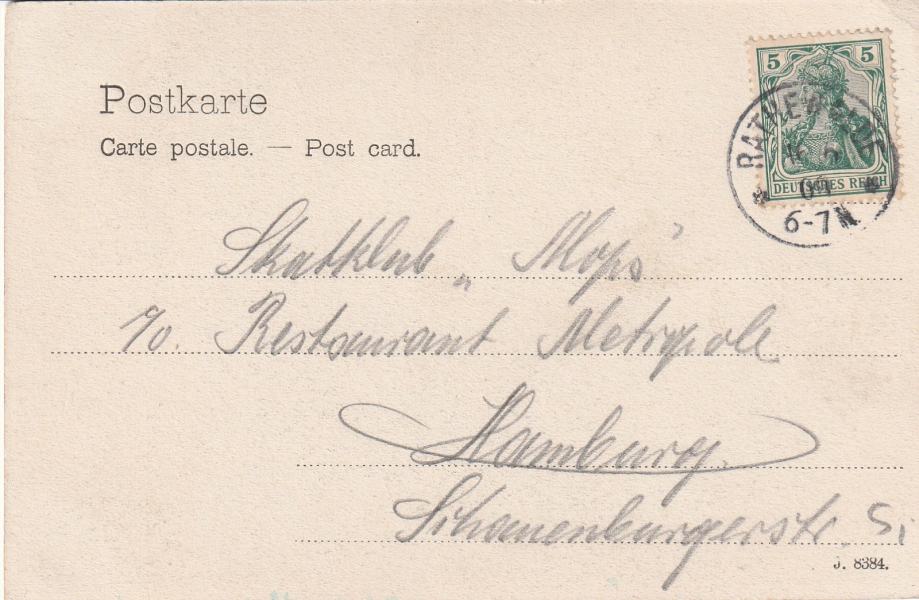 Postkarte
Carte postale. — Post card.
5 5
DEUTSCHES REICH
6-7N
Skatklub „Mops“
c/o. Restaurant Metropole
Hamburg.
Schauenburgerstr. 5.
J. 8384.